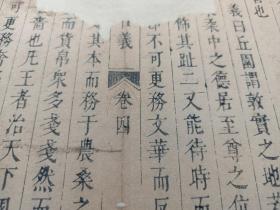 義曰丘園謂敦實之地
柔中之德居至尊之位
飾其趾二又能待時而
不可更務文華而反
口義
卷四
其本而務于農桑之
而貨帛衆多戔戔然而
嗇也凡王者治天下
可更務